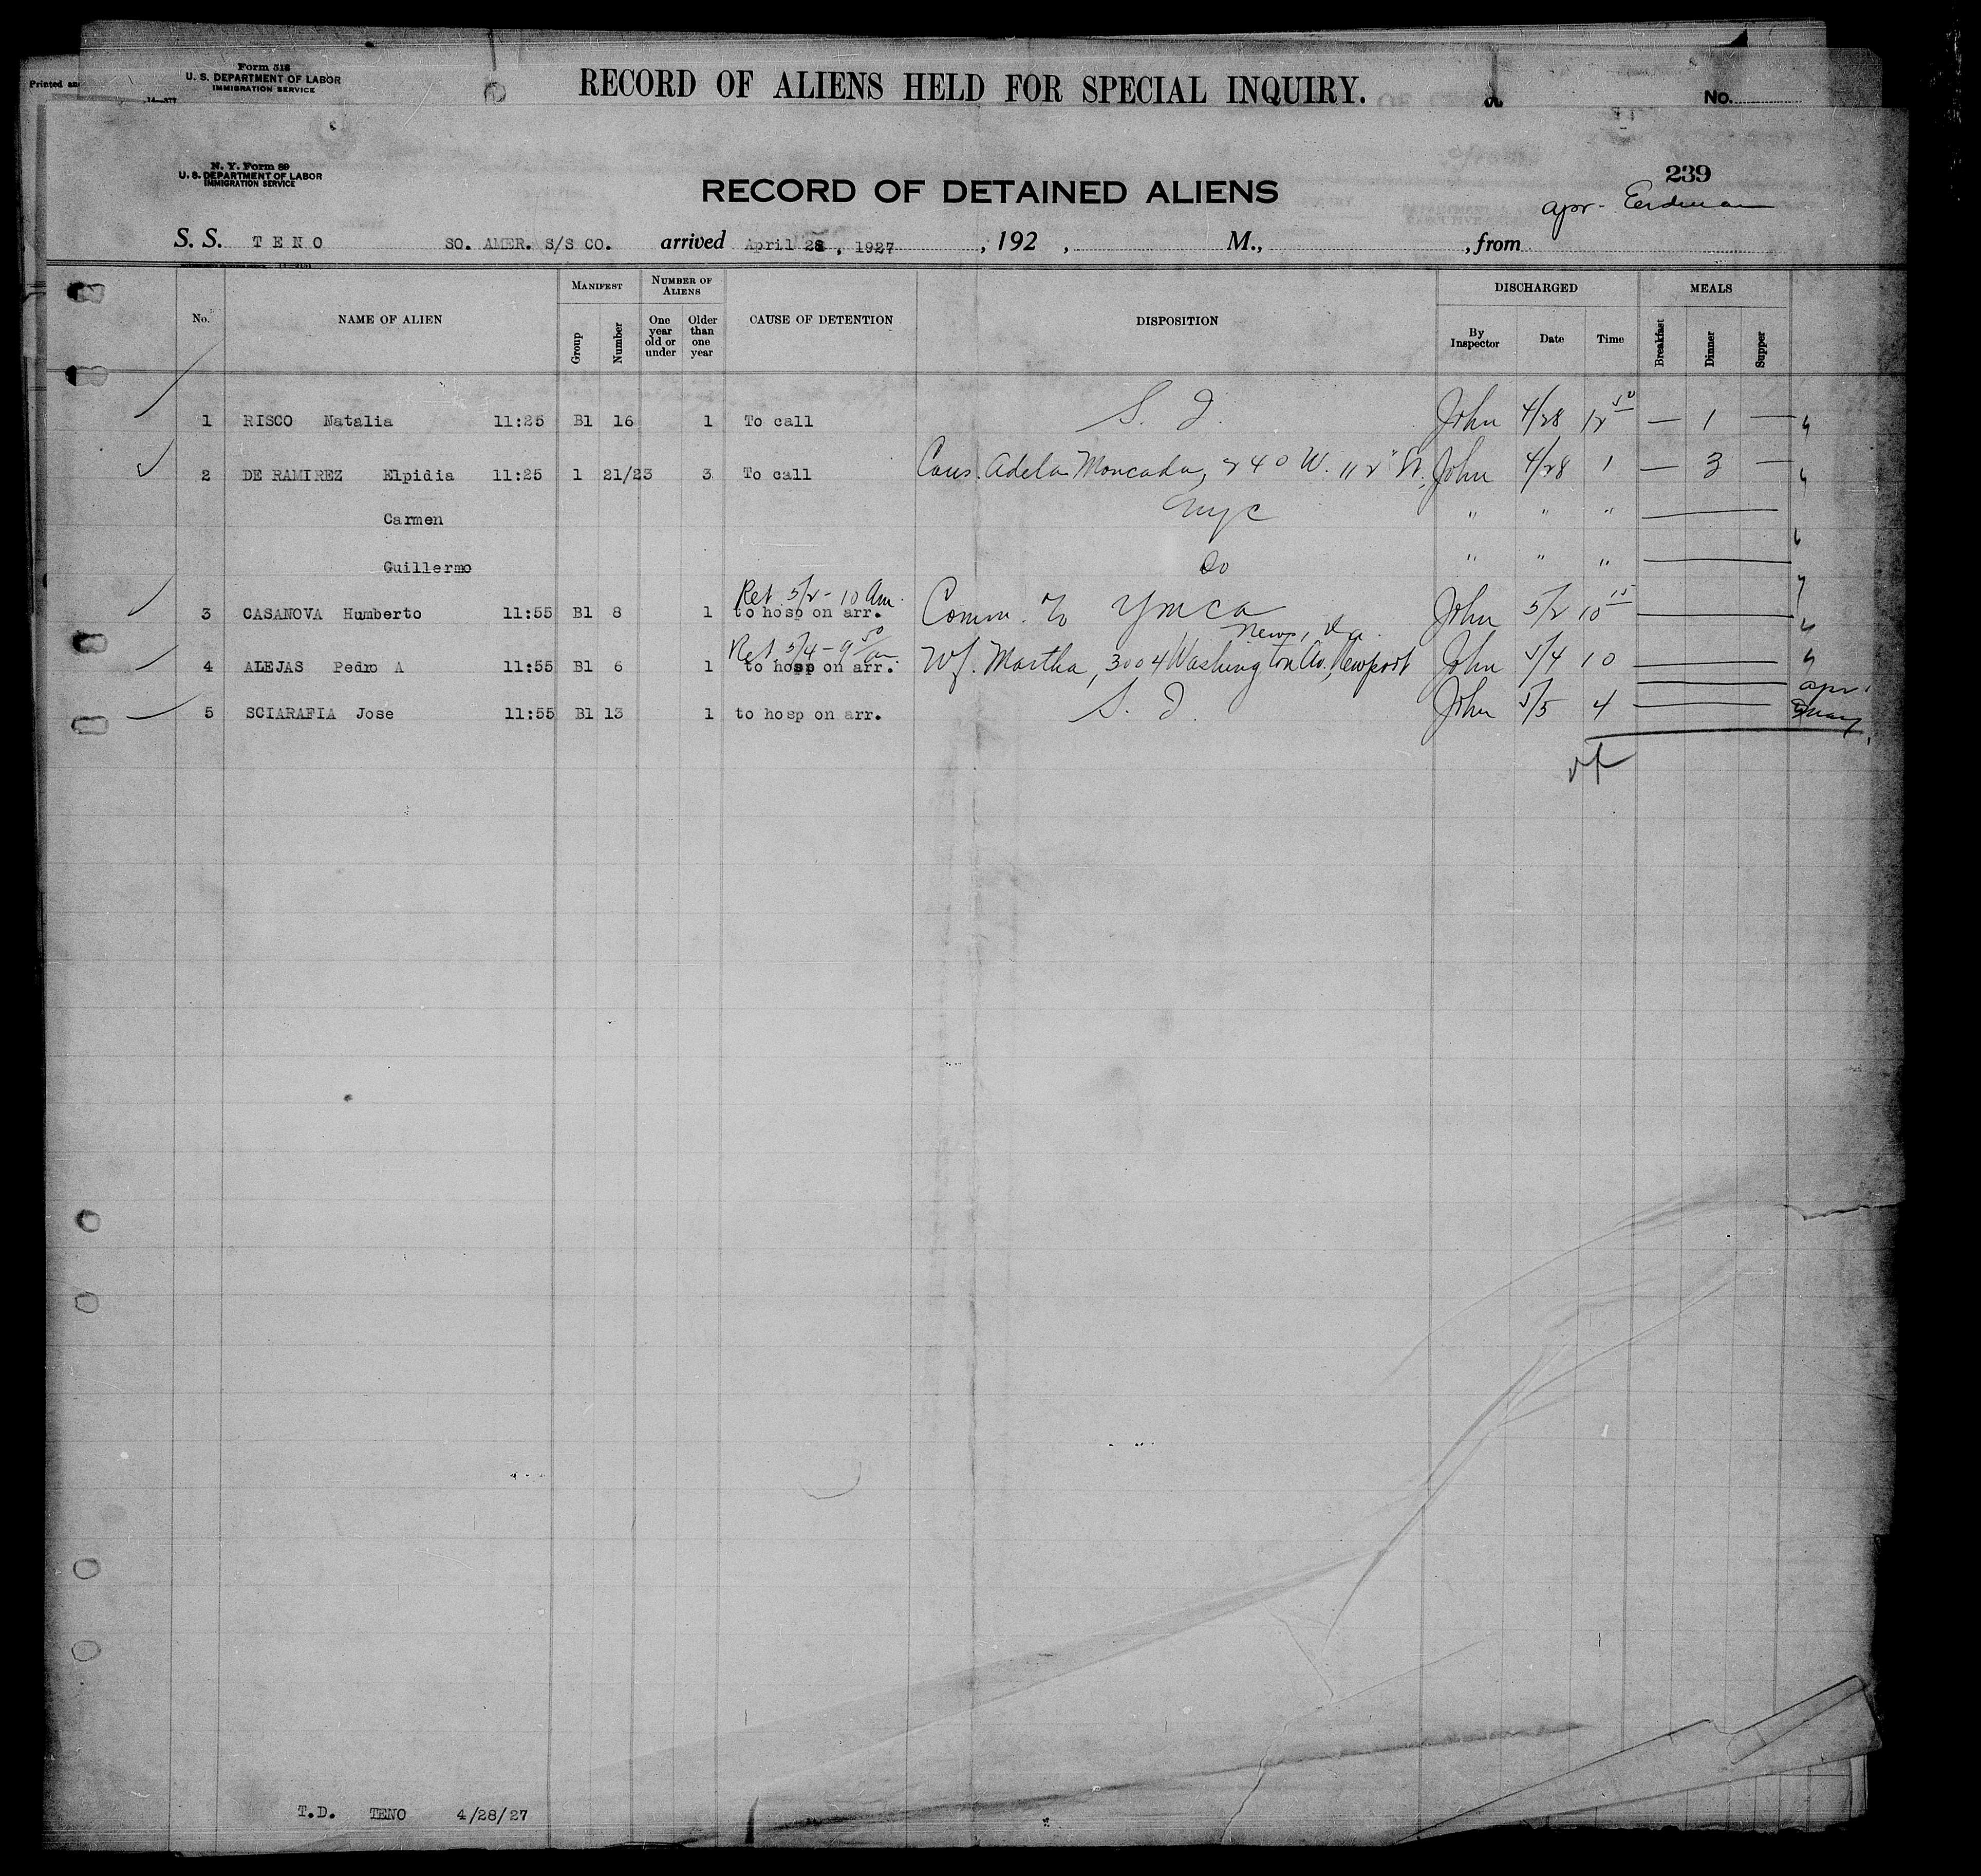 Printed and
Form 518
U. S. DEPARTMENT OF LABOR
IMMIGRATION SERVICE
14—577
RECORD OF ALIENS HELD FOR SPECIAL INQUIRY.
No.
N. Y. Form 89
U. S. DEPARTMENT OF LABOR
IMMIGRATION SERVICE
RECORD OF DETAINED ALIENS
239
apr - Erdman
S. S. TENO SO. AMER. S/S CO. arrived April 28, 1927, 192 , M., , from
No. NAME OF ALIEN MANIFEST NUMBER OF ALIENS CAUSE OF DETENTION DISPOSITION DISCHARGED MEALS
Group Number One year old or under Older than one year By Inspector Date Time Breakfast Dinner Supper
1 RISCO Natalia 11:25 B1 16 1 To call S. I. John 4/28 12 50 — 1 —
2 DE RAMIREZ Elpidia 11:25 1 21/23 3 To call Cous. Adela Moncada, 240 W. 112" St, John 4/28 1 — 3 —
Carmen nyc " " "
Guillermo Do " " "
Ret 5/2 - 10 Am.
3 CASANOVA Humberto 11:55 B1 8 1 to hosp on arr. Comm. to YMCA John 5/2 10 15
Ret 5/4 - 9 50 am News, Va.
4 ALEJAS Pedro A 11:55 B1 6 1 to hosp on arr. Wf. Martha, 3004 Washington Av, Newport John 5/4 10
apr
5 SCIARAFIA Jose 11:55 B1 13 1 to hosp on arr. S. I. John 5/5 4 May
T.D. TENO 4/28/27